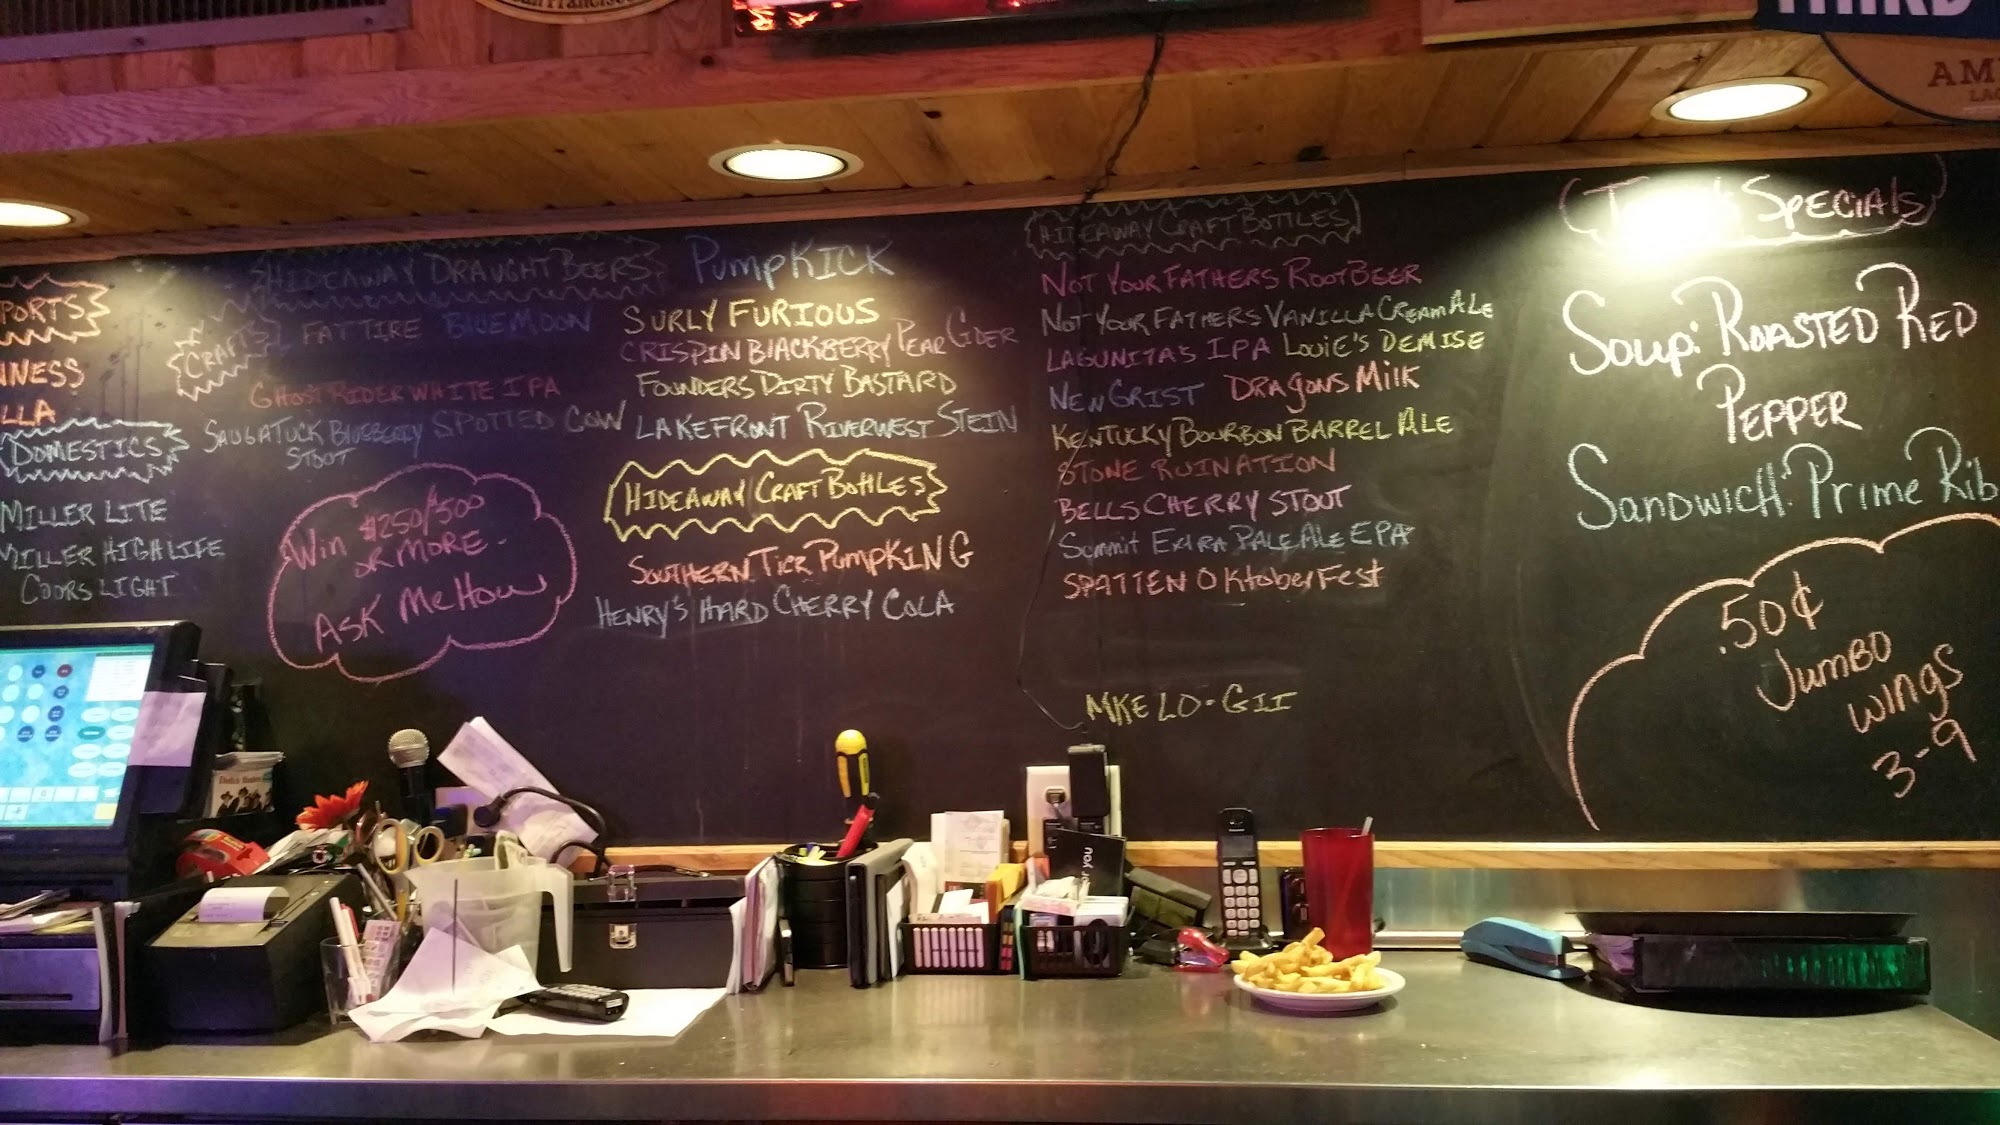 San Francisco
THIRD
AM
LAG
PORTS
NNESS
LLA
DOMESTICS
MILLER LITE
MILLER HIGH LIFE
COORS LIGHT
HIDEAWAY DRAUGHT BEERS
CRAFTS
FAT TIRE BLUE MOON
GHOST RIDER WHITE IPA
SAUGATUCK BLUEBERRY SPOTTED COW
STOUT
Win $250/$500
OR MORE.
ASK Me How
PumpKICK
SURLY FURIOUS
CRISPIN BLACKBERRY PEAR CIDER
FOUNDERS DIRTY BASTARD
LAKEFRONT RIVERWEST STEIN
HIDEAWAY CRAFT BOttLES
SOUTHERN TIER PUMPKING
HENRY'S HARD CHERRY COLA
HIDEAWAY CRAFT BOTTLES
NOT YOUR FATHERS ROOTBEER
NOT YOUR FATHERS VANILLA CREAM ALE
LAGUNITA'S IPA LOUIE'S DEMISE
NEW GRIST DRAGONS MILK
KENTUCKY BOURBON BARREL ALE
STONE RUINATION
BELLS CHERRY STOUT
Summit EXTRA PALE ALE EPA
SPATTEN OktoberFest
MKE LO-GII
Specials
Soup: ROASTED RED
PEPPER
SANDWICH: PRIME RIB
.50¢
Jumbo
WINGS
3-9